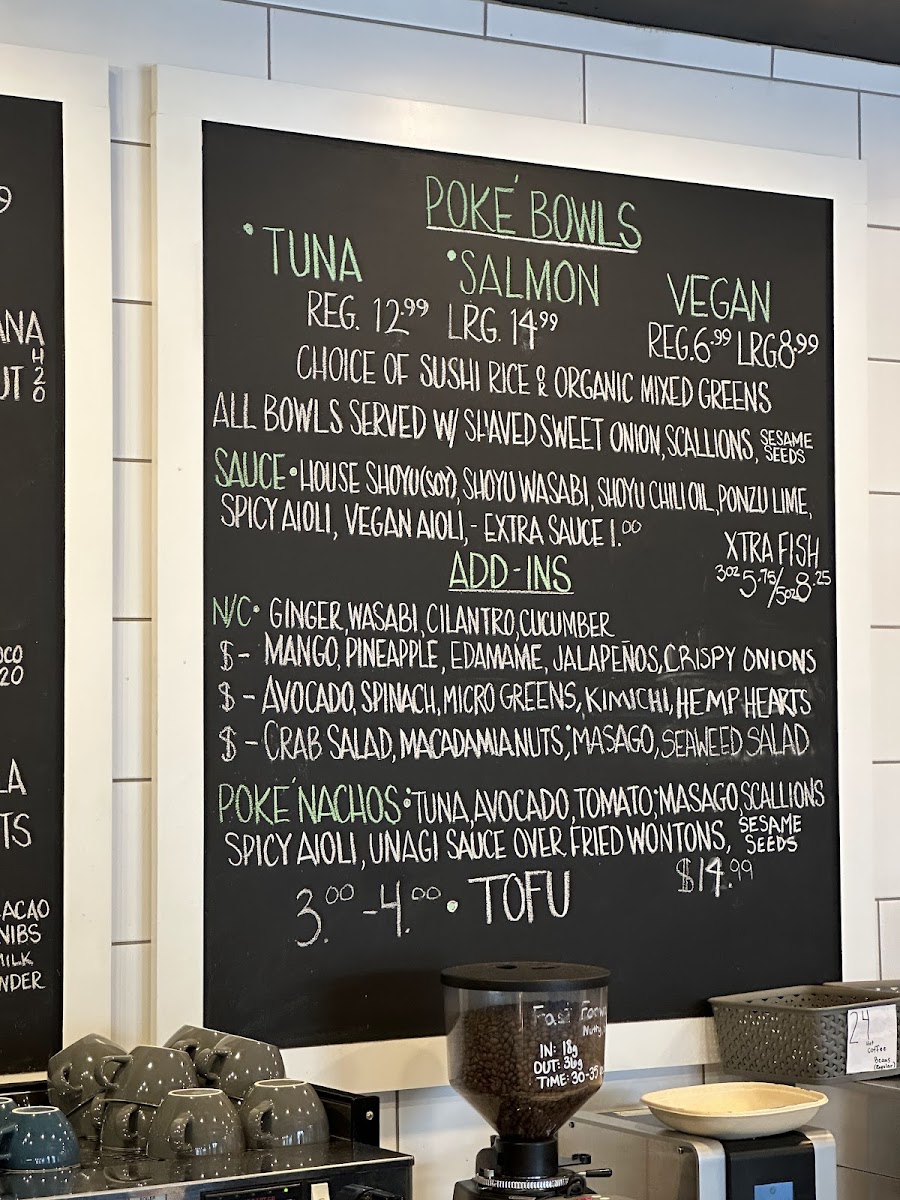 POKÉ BOWLS
•TUNA •SALMON VEGAN
REG. 12.99 LRG. 14.99 REG. 6.99 LRG 8.99
CHOICE OF SUSHI RICE & ORGANIC MIXED GREENS
ALL BOWLS SERVED W/ SHAVED SWEET ONION, SCALLIONS, SESAME SEEDS
SAUCE • HOUSE SHOYU (SOY), SHOYU WASABI, SHOYU CHILI OIL, PONZU LIME,
SPICY AIOLI, VEGAN AIOLI, - EXTRA SAUCE 1.00
XTRA FISH
3oz 5.75/5oz 8.25
ADD-INS
N/C • GINGER, WASABI, CILANTRO, CUCUMBER
$ - MANGO, PINEAPPLE, EDAMAME, JALAPEÑOS, CRISPY ONIONS
$ - AVOCADO, SPINACH, MICRO GREENS, KIMICHI, HEMP HEARTS
$ - CRAB SALAD, MACADAMIA NUTS, •MASAGO, SEAWEED SALAD
POKÉ NACHOS • TUNA, AVOCADO, TOMATO, •MASAGO, SCALLIONS
SPICY AIOLI, UNAGI SAUCE OVER FRIED WONTONS, SESAME SEEDS
$14.99
3.00 - 4.00 • TOFU
9
ANA
UT 420
OCO
20
LA
TS
ACAO
NIBS
MILK
NDER
Fast Forw
Nutty
IN: 18g
OUT: 36g
TIME: 30-35
24
Hot
Coffee
Beans
(Regular)